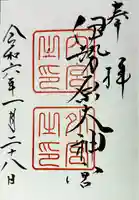 奉拝
伊勢原大神宮
令和六年一月二十八日